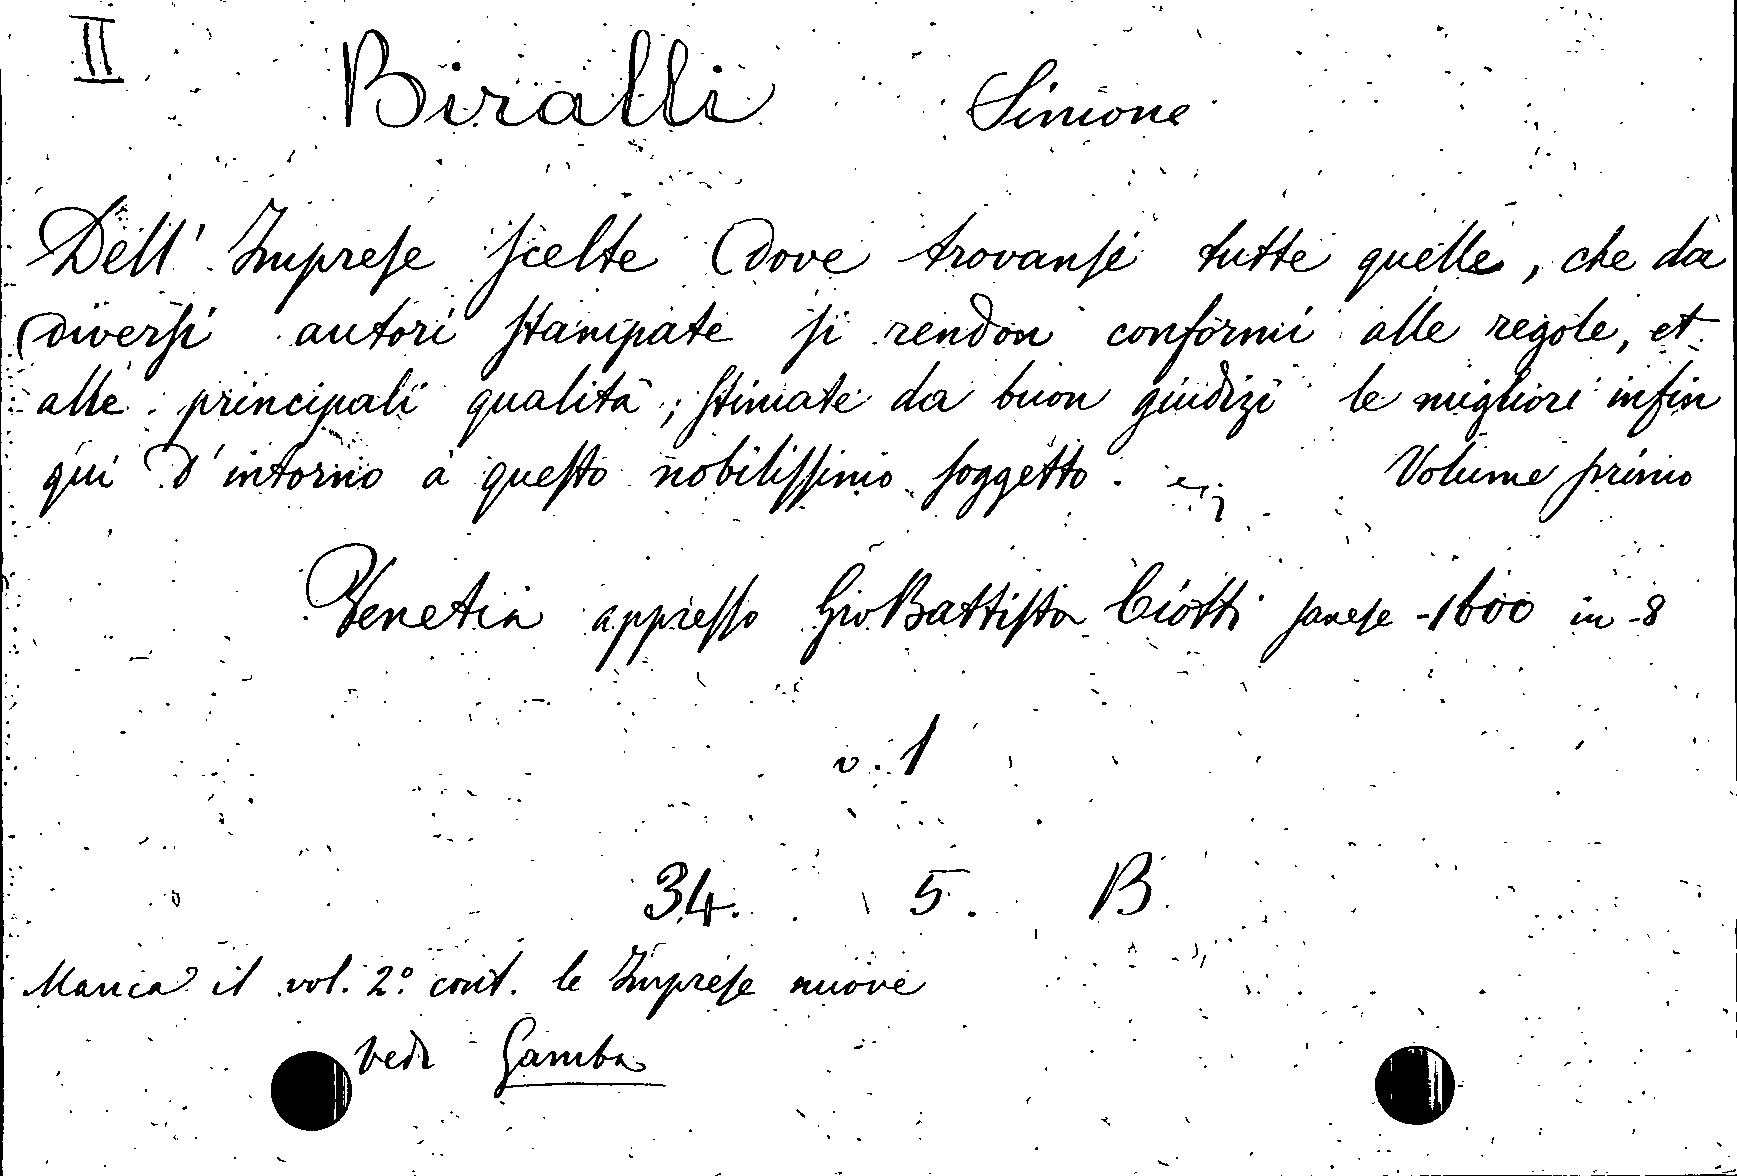 II Biralli Simone
Dell' Imprese scelte dove trovansi tutte quelle, che da
diversi autori stampate si rendon conformi alle regole, et
alle principali qualità; stimate da buon giudizi le migliori infin
qui d'intorno à questo nobilissimo soggetto. Volume primo
Venetia appresso Gio Battista Ciotti sanese - 1600 in-8
v. 1
34. 5. B
Manca il vol. 2º cont. le Imprese nuove
vedi Gamba